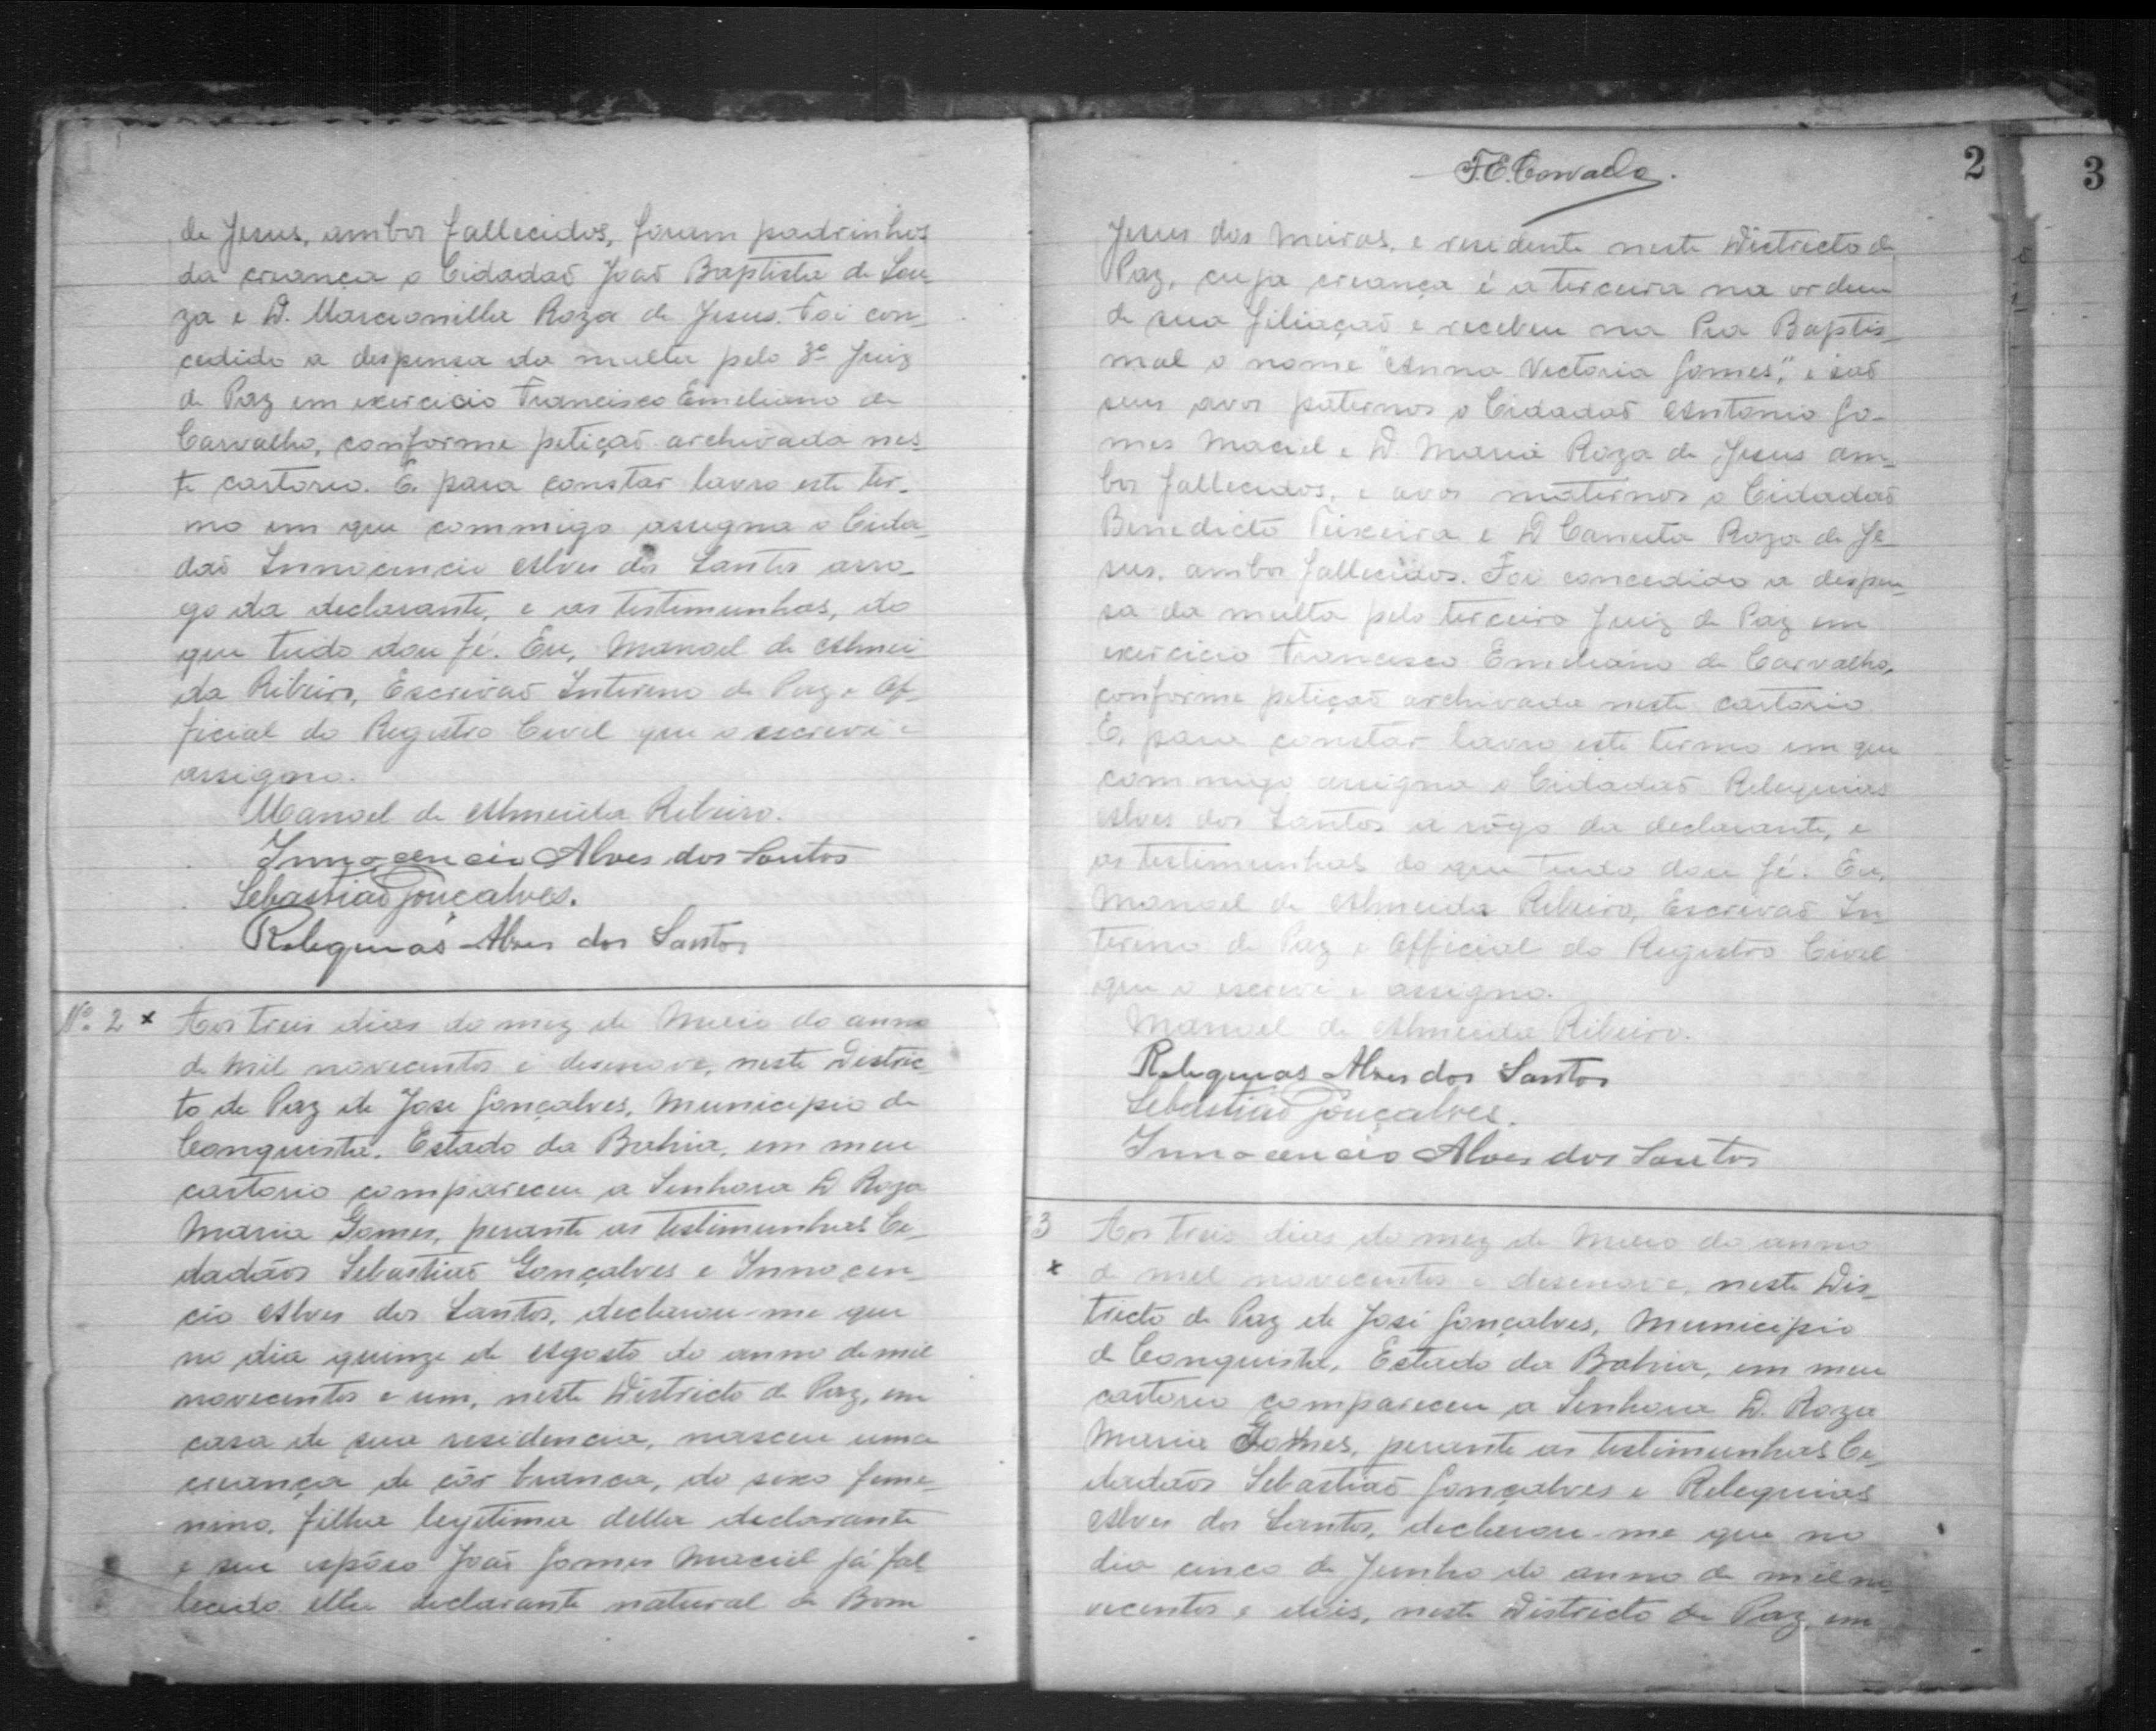 de Jesus, ambos fallecidos, foram padrinhos
da creança o Cidadaõ Joaõ Baptista de Sou-
za e D. Marcionilla Roza de Jesus. Foi con-
cedido a despensa da multa pelo 3º Juiz
de Paz em exercicio Francisco Emeliano de
Carvalho, conforme petiçaõ archivada nes-
te cartorio. E, para constar lavro este ter-
mo em que commigo assigna o Cida-
daõ Innocencio Alves dos Santos arro-
go da declarante, e as testimunhas, do
que tudo dou fé. Eu, Manoel de Almei-
da Ribeiro, Escrivaõ Interino de Paz e Of-
ficial do Registro Civel que o escrevi e
assigno.
Manoel de Almeida Ribeiro.
Innocencio Alves dos Santos
Sebastiaõ Gonçalves.
Reliquias Alves dos Santos
Nº. 2 x Aos treis dias do mez de Maio do anno
de mil novecentos e desenove, neste Distric-
to de Paz de José Gonçalves, Municipio de
Conquista, Estado da Bahia, em meu
cartorio compareceu a Senhora D Roza
Maria Gomes, perante as testimunhas Ce-
dadãos Sebastiaõ Gonçalves e Innocen-
cio Alves dos Santos, declarou-me que
no dia quinze de Agosto do anno de mil
novecentos e um, neste Districto de Paz, em
casa de sua residencia, nasceu uma
creança de côr branca, do sexo feme-
nino, filha legitima della declarante
e seu espôso Joaõ Gomes Maciel já fal-
lecido ella declarante natural de Bom
F.E.Carvalho.
2
3
Jesus dos Meiras, e residente neste Districto de
Paz, cuja creança é a terceira na ordem
de sua filiaçaõ e recebeu na Pia Baptis-
mal o nome "Anna Victoria Gomes", e saõ
seus avos paternos o Cidadaõ Antonio Go-
mes Maciel e D. Maria Roza de Jesus am-
bos fallecidos, e avos maternos o Cidadaõ
Benedicto Teixeira e D Canuta Roza de Je-
sus, ambos fallecidos. Foi concedido a despen-
sa da multa pelo terceiro Juiz de Paz em
exercicio Francisco Emeliano de Carvalho,
conforme petiçaõ archivada neste cartorio.
E, para constar lavro este termo em que
commigo assigna o Cidadaõ Reliquias
Alves dos Santos a rôgo da declarante, e
as testimunhas do que tudo dou fé. Eu,
Manoel de Almeida Ribeiro, Escrivaõ In-
terino de Paz e Official do Registro Civel
que o escrevi e assigno.
Manoel de Almeida Ribeiro.
Reliquias Alves dos Santos
Sebastiaõ Gonçalves.
Innocencio Alves dos Santos
3 Aos treis dias do mez de Maio do anno
x de mil novecentos e desenove, neste Dis-
tricto de Paz de José Gonçalves, Municipio
de Conquista, Estado da Bahia, em meu
cartorio compareceu a Senhora D. Roza
Maria Gomes, perante as testimunhas Ce-
dadãos Sebastiaõ Gonçalves e Reliquias
Alves dos Santos, declarou-me que no
dia cinco de Junho do anno de mil no-
vecentos e dois, neste Districto de Paz, em